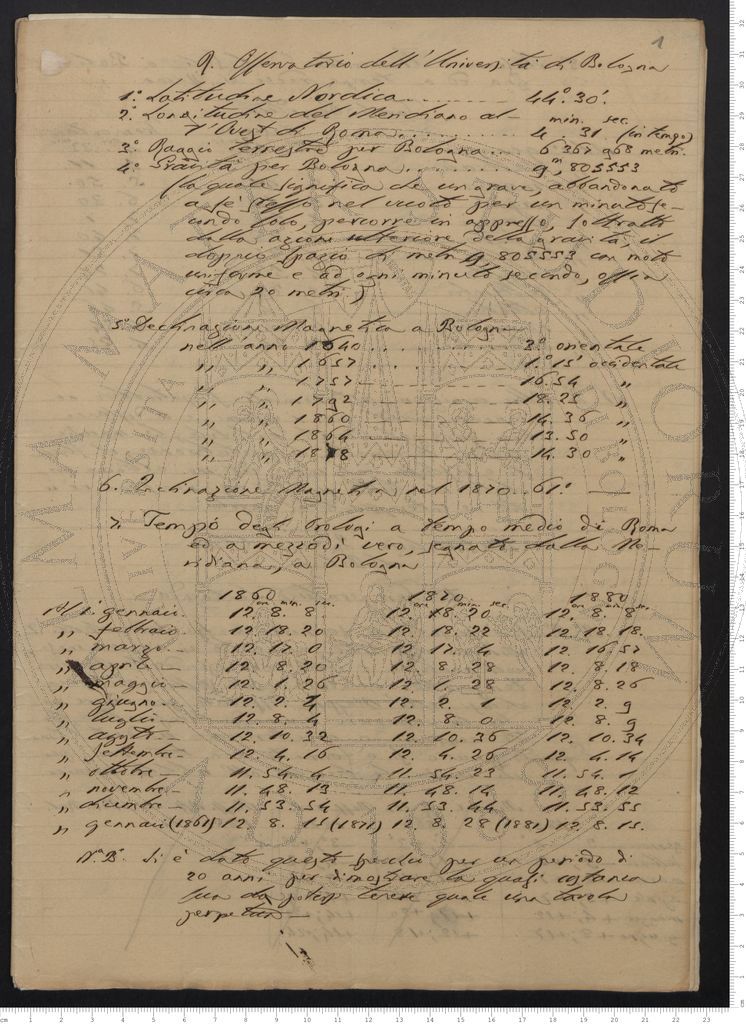 1
R. Osservatorio dell'Università di Bologna
1.° Latitudine Nordica ........ 44.° 30'.
2.° Longitudine del Meridiano al- min. sec.
l'Ovest di Roma .......... 4. 31 (in tempo)
3.° Raggio terrestre per Bologna ... 6 367 968 metri.
4.° Gravità per Bologna .......... 9m, 805553
(la quale significa che un grave, abbandonato
a se stesso nel vuoto per un minuto se-
condo solo, percorre in appresso, sottratto
dalla azione ulteriore della gravità, il
doppio spazio di metri 9,805553 con moto
uniforme e ad ogni minuto secondo, ossia
circa 20 metri)
5.° Declinazione Magnetica a Bologna
nell'anno 1640 .......... 3.° orientale
„ „ 1657 .......... 1.° 15' occidentale
„ „ 1757 16.54 „
„ „ 1792 18.25 „
„ „ 1860 14.36 „
„ „ 1864 13.50 „
„ „ 1878 14.30 „
6. Inclinazione Magnetica nel 1870 .. 61.°
7. Tempo degli Orologi a tempo medio di Roma
ed a mezzodì vero, segnato dalla Me-
ridiana, a Bologna
1860 1870 1880
ore min. sec. ore min. sec. ore min. sec.
1.° gennaio. 12. 8. 8 12. 18. 20 12. 8. 8
„ febbraio. 12. 18. 20 12. 18. 22 12. 18. 18.
„ marzo. 12. 17. 0 12. 17. 4 12. 16. 57
„ aprile 12. 8. 20 12. 8. 28 12. 8. 18
„ maggio 12. 1. 26 12. 1. 28 12. 8. 26
„ giugno. 12. 2. 12. 2. 1 12. 2. 9
„ luglio 12. 8. 4 12. 8. 0 12. 8. 9
„ agosto 12. 10. 32 12. 10. 36 12. 10. 34
„ settembre 12. 4. 16 12. 4. 26 12. 4. 14
„ ottobre 11. 54. 4 11. 54. 23 11. 54. 1
„ novembre 11. 48. 13 11. 48. 14 11. 48. 12
„ dicembre 11. 53. 54 11. 53. 44 11. 53. 55
„ gennaio (1861) 12. 8. 15 (1871) 12. 8. 28 (1881) 12. 8. 15.
N.a B.e Si è dato questo specchio per un periodo di
20 anni per dimostrare la quasi costanza
sua da potersi tenere quale una tavola
perpetua